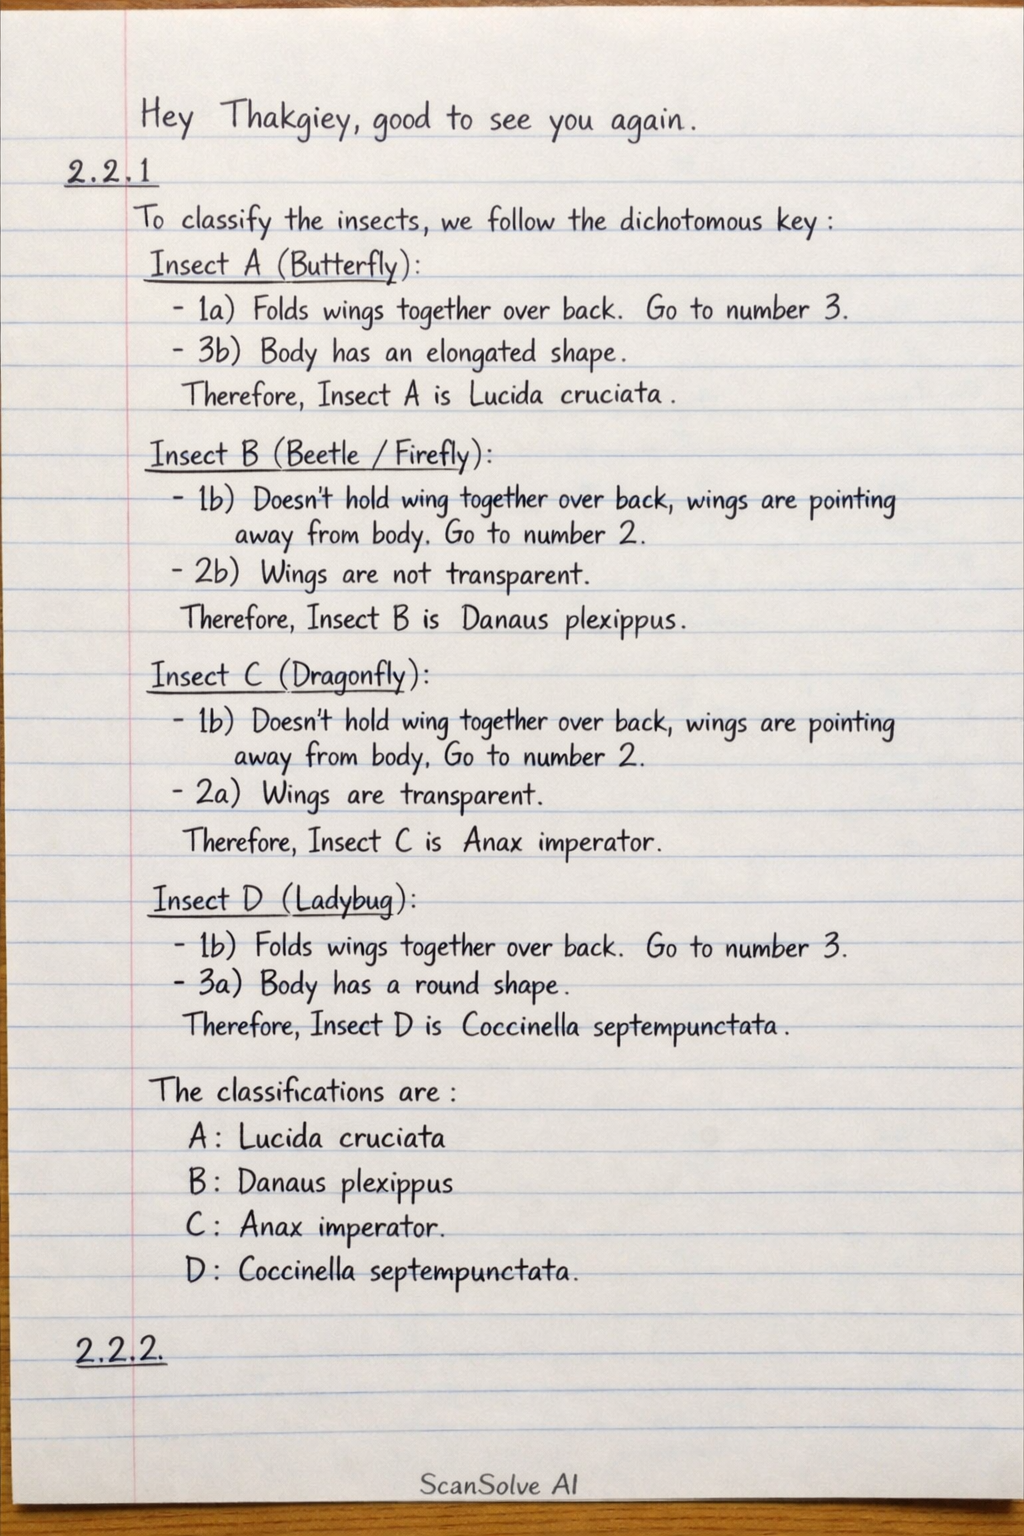 Hey Thakgiey, good to see you again.
2.2.1
To classify the insects, we follow the dichotomous key :
Insect A (Butterfly):
- 1a) Folds wings together over back. Go to number 3.
- 3b) Body has an elongated shape.
Therefore, Insect A is Lucida cruciata.
Insect B (Beetle / Firefly):
- 1b) Doesn't hold wing together over back, wings are pointing
away from body. Go to number 2.
- 2b) Wings are not transparent.
Therefore, Insect B is Danaus plexippus.
Insect C (Dragonfly):
- 1b) Doesn't hold wing together over back, wings are pointing
away from body, Go to number 2.
- 2a) Wings are transparent.
Therefore, Insect C is Anax imperator.
Insect D (Ladybug):
- 1b) Folds wings together over back. Go to number 3.
- 3a) Body has a round shape.
Therefore, Insect D is Coccinella septempunctata.
The classifications are :
A: Lucida cruciata
B: Danaus plexippus
C: Anax imperator.
D: Coccinella septempunctata.
2.2.2.
ScanSolve AI